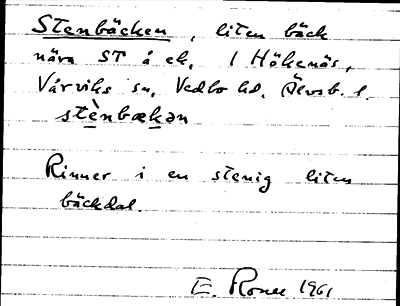 Stenbäcken, liten bäck
nära ST å ek. 1 Hökenäs,
Vårviks sn, Vedbo hd. Älvsb. l.
stènbækən
Rinner i en stenig liten
bäckdal.
E. Rosell 1961